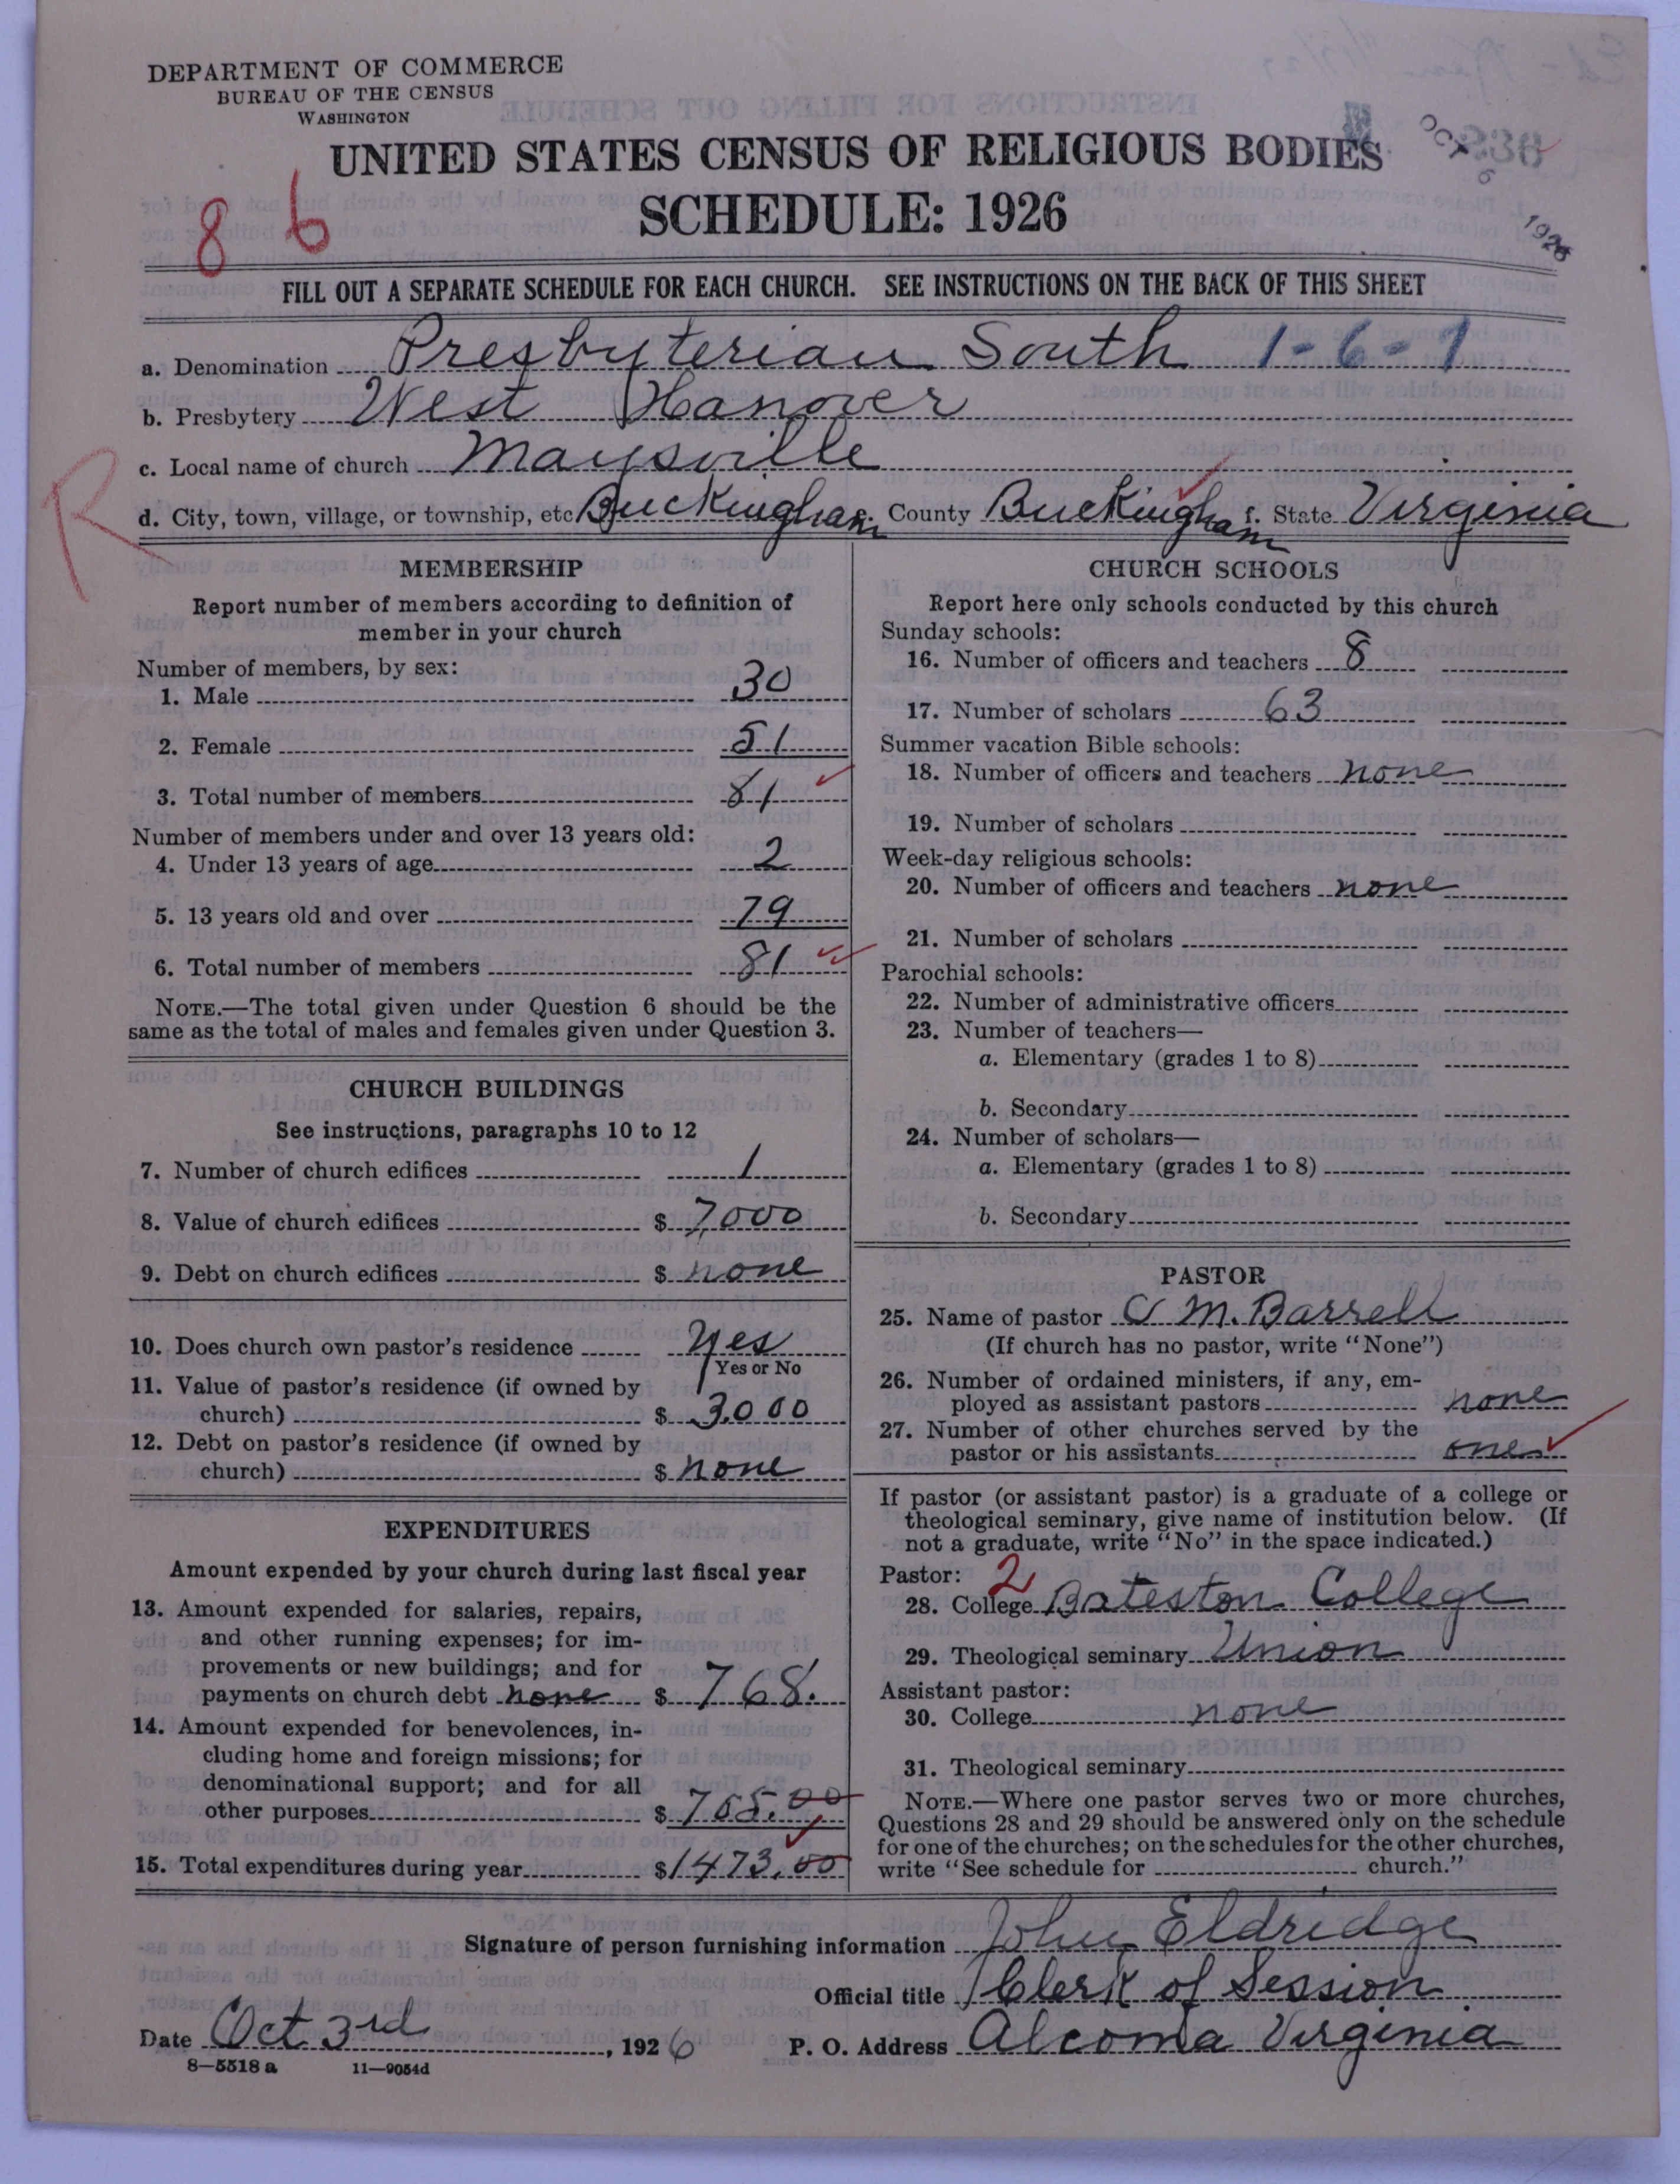 DEPARTMENT OF COMMERCE
BUREAU OF THE CENSUS
WASHINGTON
UNITED STATES CENSUS OF RELIGIOUS BODIES
SCHEDULE: 1926
OCT 6 1926
8 6
FILL OUT A SEPARATE SCHEDULE FOR EACH CHURCH. SEE INSTRUCTIONS ON THE BACK OF THIS SHEET
a. Denomination Presbyterian South 1-6-7
b. Presbytery West Hanover
c. Local name of church Maysville
R
d. City, town, village, or township, etc. Buckingham e. County Buckingham f. State Virginia
MEMBERSHIP
Report number of members according to definition of
member in your church
Number of members, by sex:
1. Male 30
2. Female 51
3. Total number of members 81
Number of members under and over 13 years old:
4. Under 13 years of age 2
5. 13 years old and over 79
6. Total number of members 81
NOTE.—The total given under Question 6 should be the
same as the total of males and females given under Question 3.
CHURCH BUILDINGS
See instructions, paragraphs 10 to 12
7. Number of church edifices 1
8. Value of church edifices $ 7,000
9. Debt on church edifices $ none
10. Does church own pastor's residence yes
Yes or No
11. Value of pastor's residence (if owned by
church) $ 3.000
12. Debt on pastor's residence (if owned by
church) $ none
EXPENDITURES
Amount expended by your church during last fiscal year
13. Amount expended for salaries, repairs,
and other running expenses; for im-
provements or new buildings; and for
payments on church debt none $ 768.
14. Amount expended for benevolences, in-
cluding home and foreign missions; for
denominational support; and for all
other purposes $ 705.00
15. Total expenditures during year $1473.00
CHURCH SCHOOLS
Report here only schools conducted by this church
Sunday schools:
16. Number of officers and teachers 8
17. Number of scholars 63
Summer vacation Bible schools:
18. Number of officers and teachers none
19. Number of scholars
Week-day religious schools:
20. Number of officers and teachers none
21. Number of scholars
Parochial schools:
22. Number of administrative officers
23. Number of teachers—
a. Elementary (grades 1 to 8)
b. Secondary
24. Number of scholars—
a. Elementary (grades 1 to 8)
b. Secondary
PASTOR
25. Name of pastor C M. Barrell
(If church has no pastor, write "None")
26. Number of ordained ministers, if any, em-
ployed as assistant pastors none
27. Number of other churches served by the
pastor or his assistants one
If pastor (or assistant pastor) is a graduate of a college or
theological seminary, give name of institution below. (If
not a graduate, write "No" in the space indicated.)
Pastor: 2
28. College Bateston College
29. Theological seminary Union
Assistant pastor:
30. College none
31. Theological seminary
NOTE.—Where one pastor serves two or more churches,
Questions 28 and 29 should be answered only on the schedule
for one of the churches; on the schedules for the other churches,
write "See schedule for church."
Signature of person furnishing information John Eldridge
Official title Clerk of Session
Date Oct 3rd, 1926 P. O. Address Alcoma Virginia
8—5518 a 11—9054d